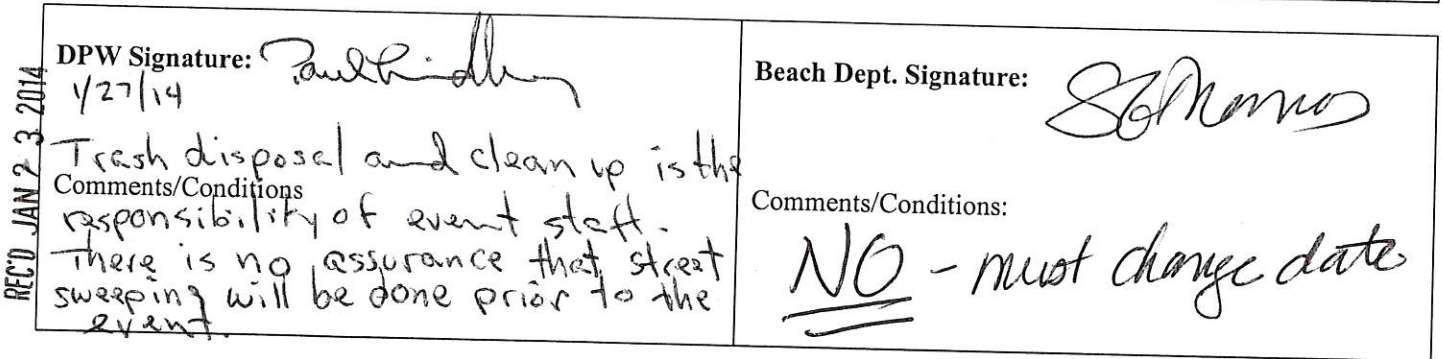 REC'D JAN 23 2014
DPW Signature:
1/27/14
Trash disposal and clean up is the
Comments/Conditions
responsibility of event staff.
There is no assurance that street
sweeping will be done prior to the
event.
Beach Dept. Signature:
Comments/Conditions:
NO - must change date